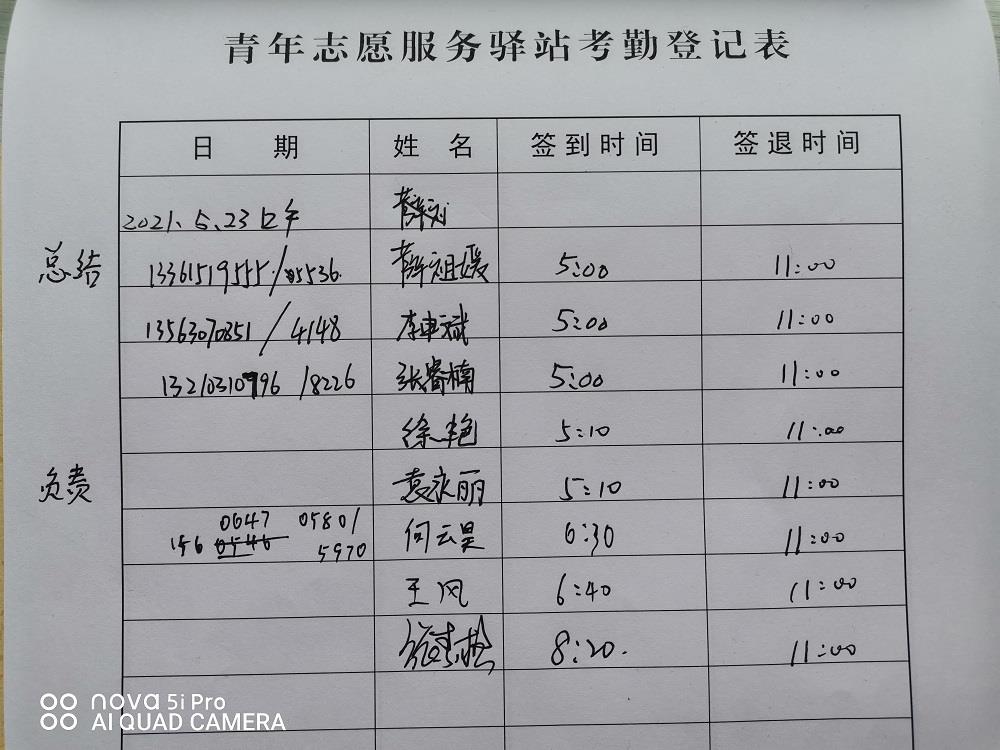 青年志愿服务驿站考勤登记表
日 期 姓 名 签到时间 签退时间
2021.5.23上午 薛刘
总结 13361519555/05536. 薛祖媛 5:00 11:00
13563070851/4148 李申斌 5:00 11:00
13210310796/8226 张睿楠 5:00 11:00
徐艳 5:10 11:00
负责 袁永丽 5:10 11:00
0647 05801
156 0546 5970 何云昊 6:30 11:00
王风 6:40 11:00
8:20. 11:00
nova 5i Pro
AI QUAD CAMERA